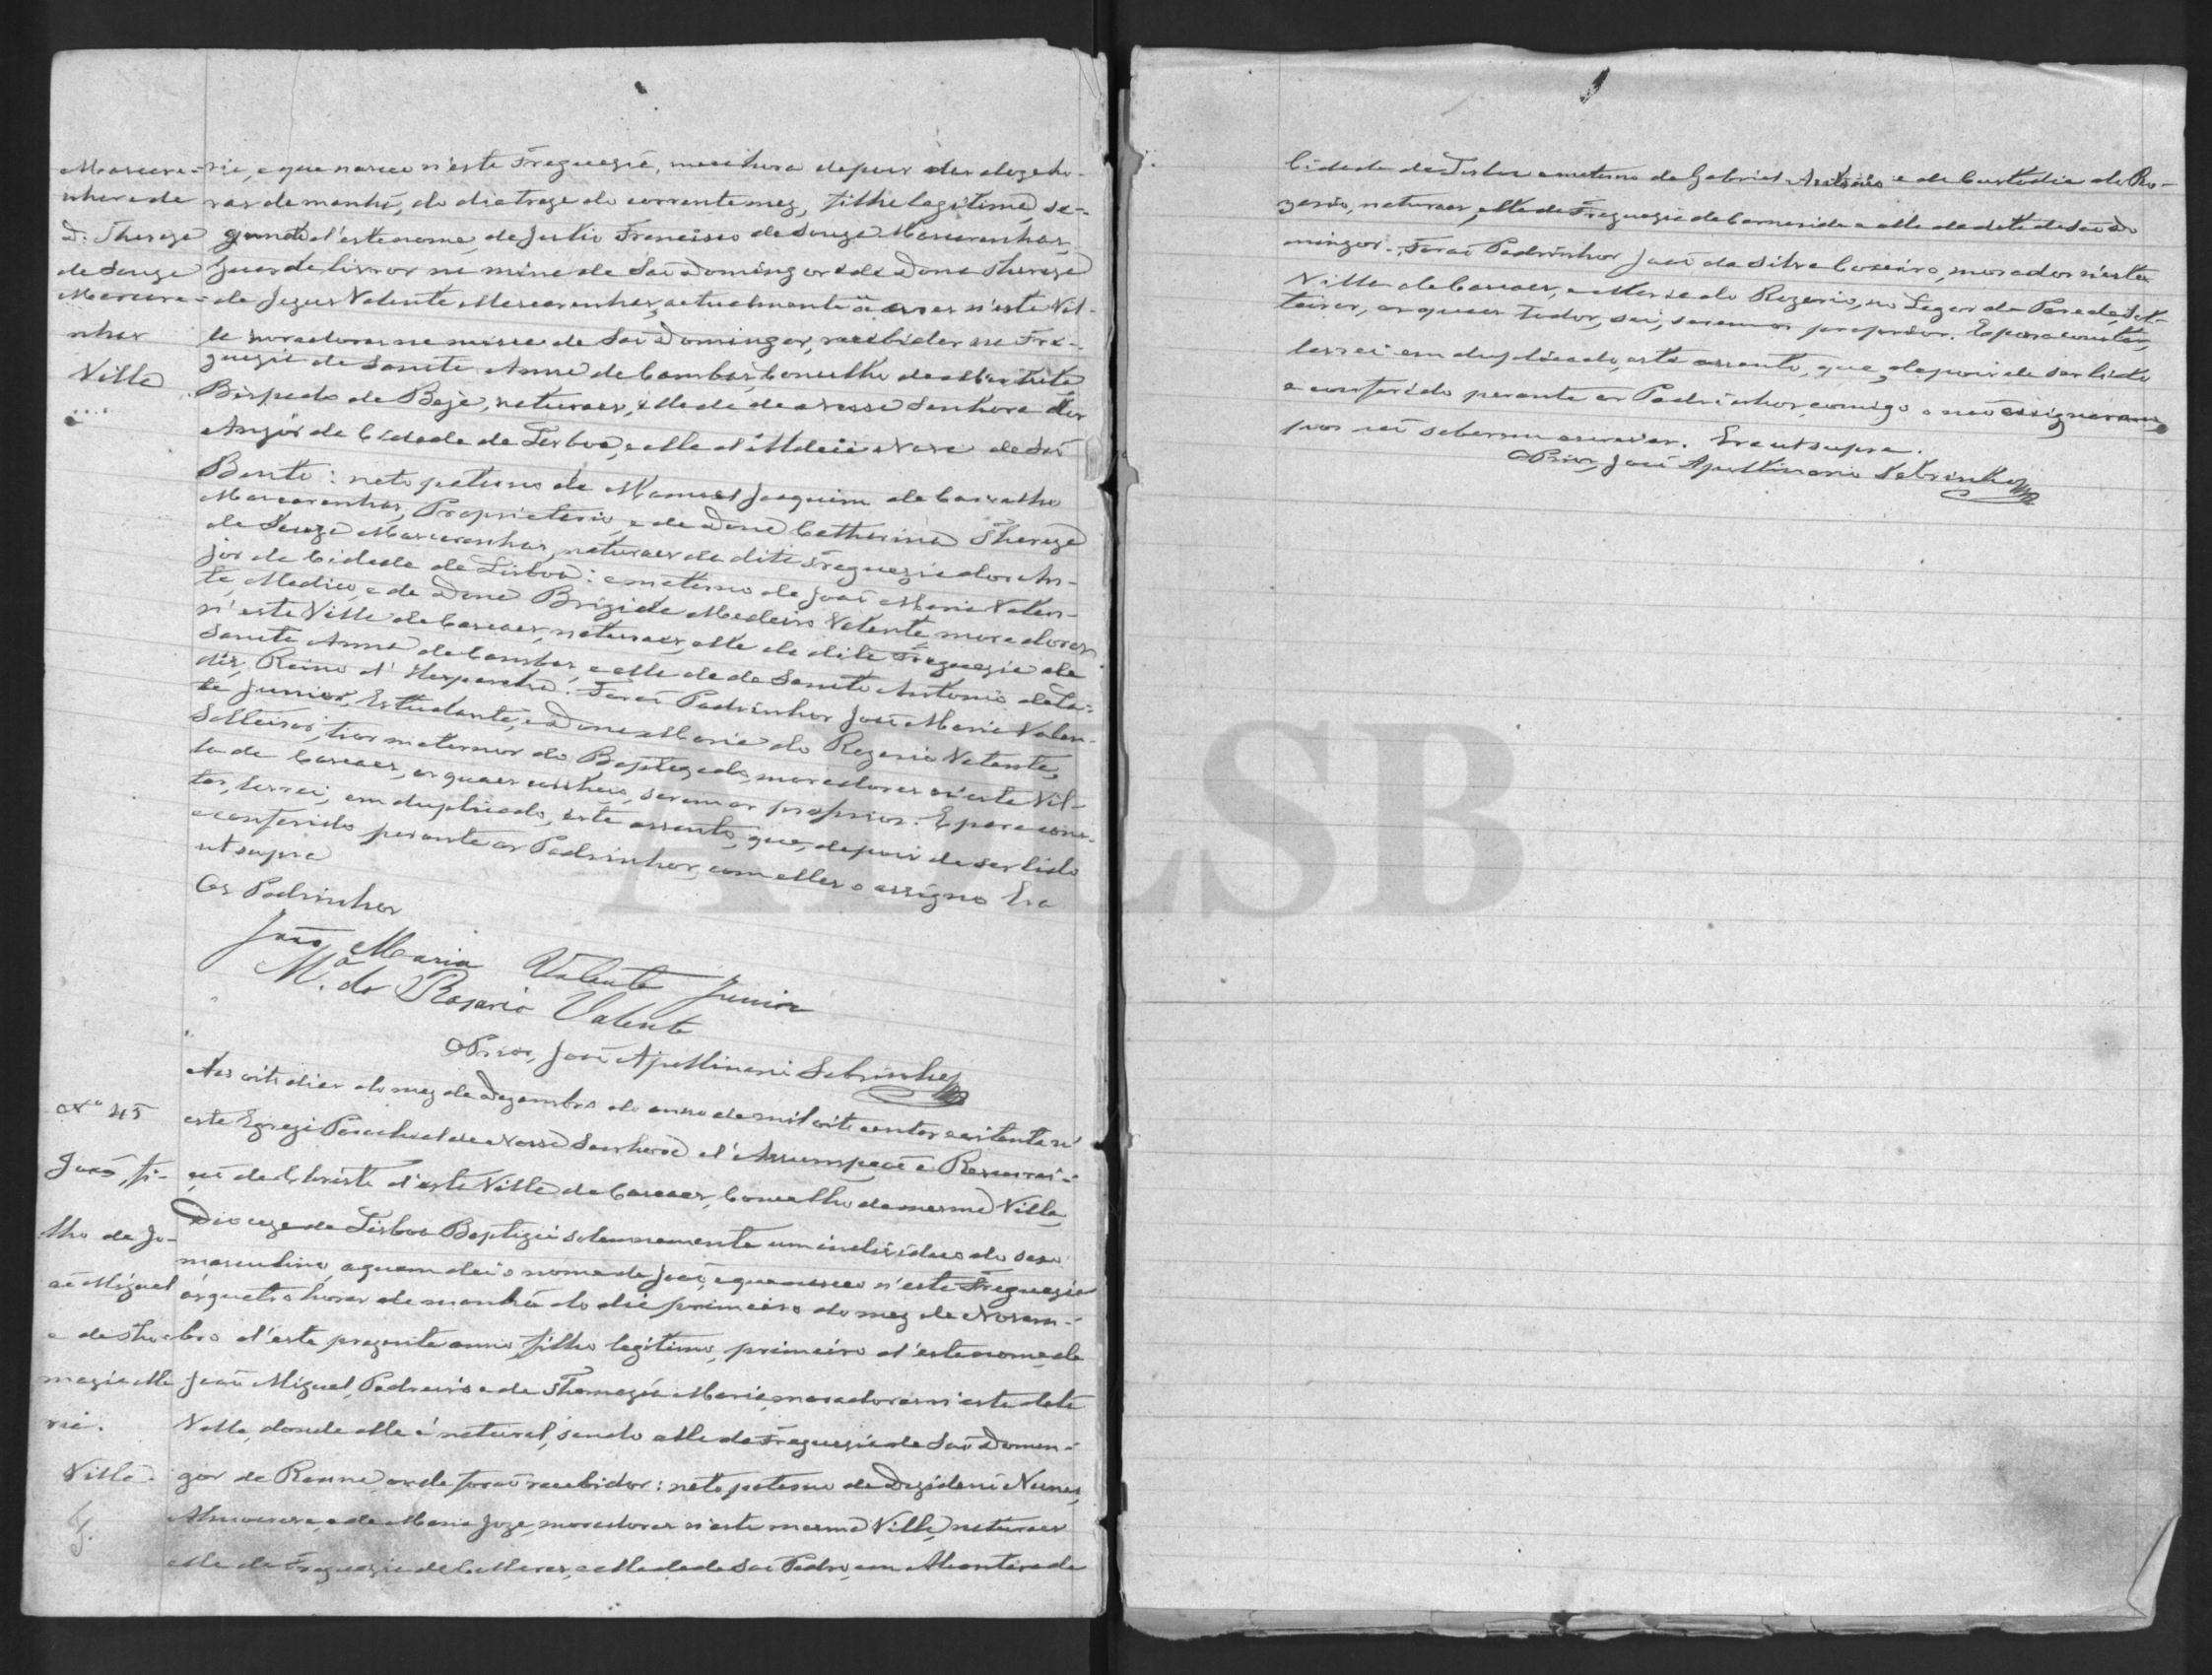 Mascare-
nhas e de
D. Thereza
de Souza
Mascare-
nhas
Villa
ria, e que nasceu n'esta Freguezia, meia hora depois das doze ho-
ras da manhã, do dia treze do corrente mez, filho legitimo, se-
gundo d'este nome, de Julio Francisco de Souza Mascarenhas,
Guarda livros na mina de São Domingos e de Dona Thereza
de Jezus Valente Mascarenhas, actualmente a ares n'esta Vil-
la moradores na mina de São Domingos, recebidos na Fre-
guezia de Santa Anna de Cambas, Concelho de Mertola,
Bispado de Beja, naturaes, elle de Nossa Senhora dos
Anjos da Cidade de Lisboa, e ella d'Aldeia Nova de São
Bento: neto paterno de Manuel Joaquim de Carvalho
Mascarenhas, Proprietario, e de Dona Catharina Thereza
de Souza Mascarenhas, naturaes da dita Freguezia dos An-
jos da Cidade de Lisboa: e materno de João Maria Valen-
te, Medico, e de Dona Brigida Medeiro Valente, moradores
n'esta Villa de Cascaes, naturaes, elle da dita Freguezia de
Santa Anna de Cambas, e ella da de Santo Antonio de Ca-
diz, Reino d'Hespanha. Forão Padrinhos João Maria Valen-
te Junior, Estudante, e Dona Maria do Rozario Valente,
Solteiros, tios maternos do Baptizado, moradores n'esta Vil-
la de Cascaes, os quaes conheço, serem os proprios. E para cons-
tar, lavrei, em duplicado, este assento, que, depois de ser lido
e conferido perante os Padrinhos, com elles o assigno. Era
ut supra
Os Padrinhos
João Maria Valente Junior
M.ª do Rosario Valente
O Prior, José Apollinario Sobrinho
Nº 45
João, fi-
lho de Jo-
ão Miguel
e de Tho-
mazia Ma-
ria.
Villa.
Aos oito dias do mez de Dezembro do anno de mil oito centos e oitenta n'
esta Egreja Parochial de Nossa Senhora d'Assumpção e Resurrei-
ção de Christo d'esta Villa de Cascaes, Concelho da mesma Villa,
Dioceze de Lisboa Baptizei solemnemente um individuo do sexo
masculino, a quem dei o nome de João, e que nasceu n'esta Freguezia
ás quatro horas da manhã do dia primeiro do mez de Novem-
bro d'este prezente anno, filho legitimo, primeiro d'este nome, de
João Miguel, Pedreiro e de Thomazia Maria, moradores n'esta dita
Villa, donde elle é natural, sendo ella da Freguezia de São Domin-
gos de Ranna, onde forão recebidos: neto paterno de Deziderio Nunes,
Almocreve, e de Maria Joze, moradores n'esta mesma Villa, naturaes
elle da Freguezia de Collares, e ella da de São Pedro, em Alcantara da
Cidade de Lisboa e materno de Gabriel Antonio e de Custodia do Ro-
zario, naturaes, elle da Freguezia de Carnaxide e ella da dita de São Do
mingos. Forão Padrinhos José da Silva Coseiro, morador n'esta
Villa de Cascaes, e Maria do Rozario, no Logar da Parede, Sol-
teiros, os quaes todos, sei, serem os proprios. E para constar,
lavrei em duplicado, este assento, que, depois de ser lido
e conferido perante os Padrinhos, comigo o não assignaram
por não saberem escrever. Era ut supra.
O Prior, José Apollinario Sobrinho
ADLSB